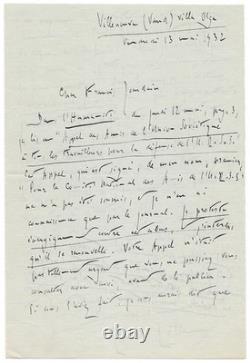 Villeneuve (Vaud) villa Olga
vendredi 13 mai 1932
Cher Francis Jourdain
Dans l'Humanité du jeudi 12 mai, page 3,
je lis un "Appel des Amis de l'Union Soviétique
à tous les travailleurs pour la défense de l'U.R.S.S."
Cet Appel, qui est signé, de mon nom,
"Pour le Comité National des Amis de l'U.R.S.S."
ne m'a pas été soumis, et je n'en ai
connaissance que par le journal. Je proteste
énergiquement contre ce même,
qu'il se renouvelle. Votre Appel n'était
pas tellement urgent que vous ne puissiez
consulter avant de le publier.